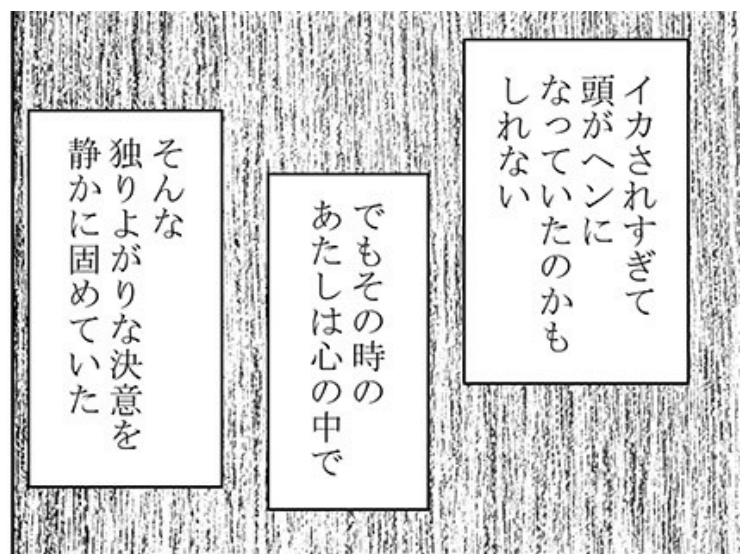 イカされすぎて
頭がヘンに
なっていたのかも
しれない
でもその時の
あたしは心の中で
そんな
独りよがりな決意を
静かに固めていた